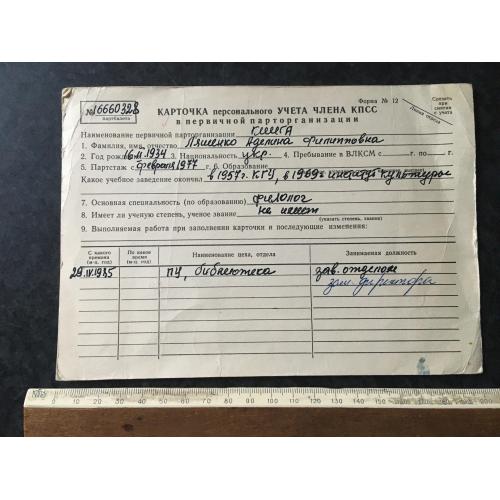 Форма № 12
Срезать при снятии с учета
Линия отреза
№ 16660328
партбилета
КАРТОЧКА персонального УЧЕТА ЧЛЕНА КПСС
в первичной парторганизации
Наименование первичной парторганизации КИИГА
1. Фамилия, имя, отчество Ляшенко Аделина Филипповна
2. Год рождения 16.II.1934 3. Национальность укр. 4. Пребывание в ВЛКСМ с г. по г.
5. Партстаж с февраля 1977 г. 6. Образование
Какое учебное заведение окончил в 1957г. КГУ, в 1969г институт культуры
7. Основная специальность (по образованию) филолог
8. Имеет ли ученую степень, ученое звание не имеет
(указать степень, звание)
9. Выполняемая работа при заполнении карточки и последующие изменения:
С какого времени (м-ц, год) По какое время (м-ц, год) Наименование цеха, отдела Занимаемая должность
29.IV.1985 ПЧ, библиотека зав. отделом
зам. директора